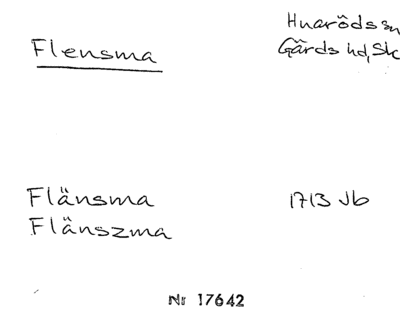 Flensma
Huaröds sn
Gärds hd, Sk
Flänsma
Flänszma
1713 Jb
Nr 17642